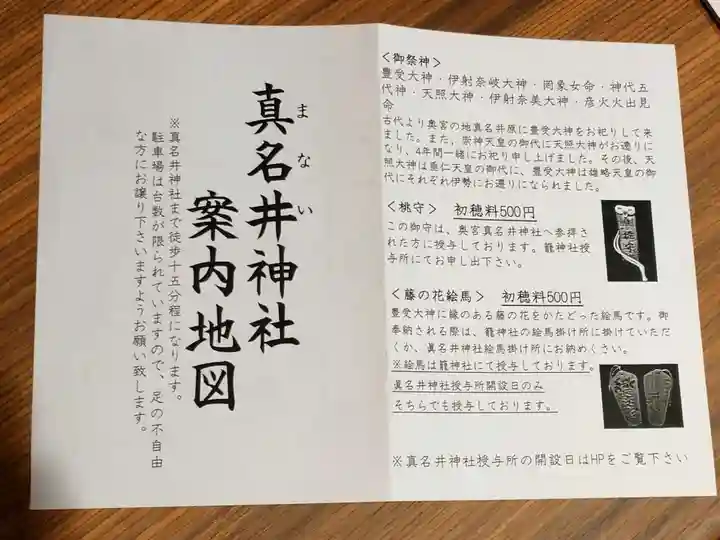 真名井神社
まない
案内地図
※真名井神社まで徒歩十五分程になります。
駐車場は台数が限られていますので、足の不自由
な方にお譲り下さいますようお願い致します。
<御祭神>
豊受大神・伊射奈岐大神・罔象女命・神代五
代神・天照大神・伊射奈美大神・彦火火出見
命
古代より奥宮の地真名井原に豊受大神をお祀りして来
ました。また、崇神天皇の御代に天照大神がお遷りに
なり、4年間一緒にお祀り申し上げました。その後、天
照大神は垂仁天皇の御代に、豊受大神は雄略天皇の御
代にそれぞれ伊勢にお遷りになられました。
<桃守> 初穂料500円
この御守は、奥宮真名井神社へ参拝さ
れた方に授与しております。籠神社授
与所にてお申し出下さい。
<藤の花絵馬> 初穂料500円
豊受大神に縁のある藤の花をかたどった絵馬です。御
奉納される際は、籠神社の絵馬掛け所に掛けていただ
くか、眞名井神社絵馬掛け所にお納めください。
※絵馬は籠神社にて授与しております。
眞名井神社授与所開設日のみ
そちらでも授与しております。
※真名井神社授与所の開設日はHPをご覧下さい